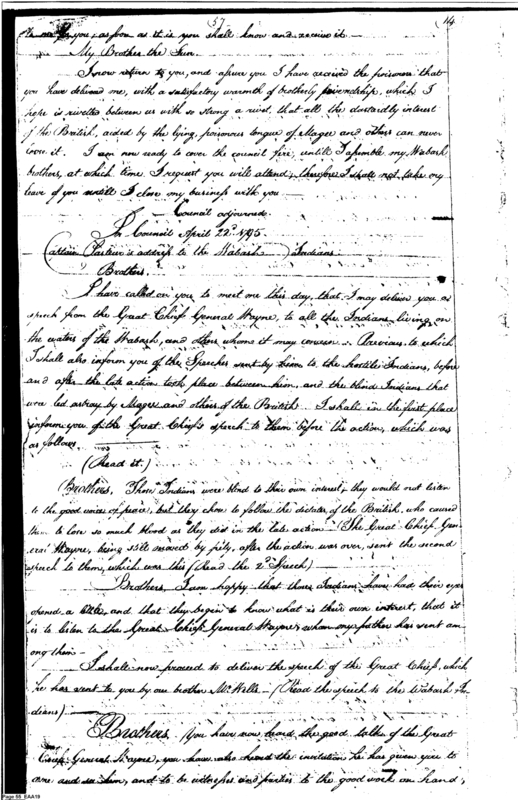 57
114
for you, as soon as it is you shall know and receive it
My Brother the Sun.
I now return to you, and assure you I have received the prisoners that
you have delivered me, with a satisfactory warmth of brotherly friendship, which I
hope is rivetted between us with so strong a rivet, that all the dastardly interest
of the British, aided by the lying, poisonous tongue of Magee and others can never
loose it. I am now ready to cover the council fire, untill I assemble my Wabash
brothers, at which time I request you will attend, therefore I shall not take my
leave of you untill I close my business with you
Council adjourned.
In Council April 22d 1795.
Captain Pasteur's address to the Wabash Indians
Brothers.
I have called on you to meet me this day, that I may deliver you a
speech from the Great Chief General Wayne, to all the Indians living on
the waters of the Wabash, and others whom it may concern. Previous to which
I shall also inform you of the Speeches sent by him to the hostile Indians, before
and after the late action took place between him, and the blind Indians that
were led astray by Magee and others of the British. I shall in the first place
inform you of the Great Chief's speech to them before the action, which was
as follows
(Read it.)
Brothers, Those Indians were blind to their own interest, they would not listen
to the good voice of peace, but they chose to follow the dictates of the British, who caused
them to lose so much blood as they did in the late action. The Great Chief Gen-
eral Wayne, being still moved by pity, after the action was over, sent the second
speech to them, which was this (Read the 2d Speech)
Brothers, I am happy that those Indians have had their eyes
opened a little, and that they begin to know what is their own interest, that it
is to listen to the Great Chief General Wayne, whom my father has sent am
ong them
I shall now proceed to deliver the speech of the Great Chief, which
he has sent to you by our brother Mr. Wells (Read the speech to the Wabash In-
dians)
Brothers, You have now heard the good talk of the Great
Chief General Wayne, you have also heard the invitation he has given you to
come and see him, and to be witnesses and parties to the good work on hand,
Page 58 EAA19